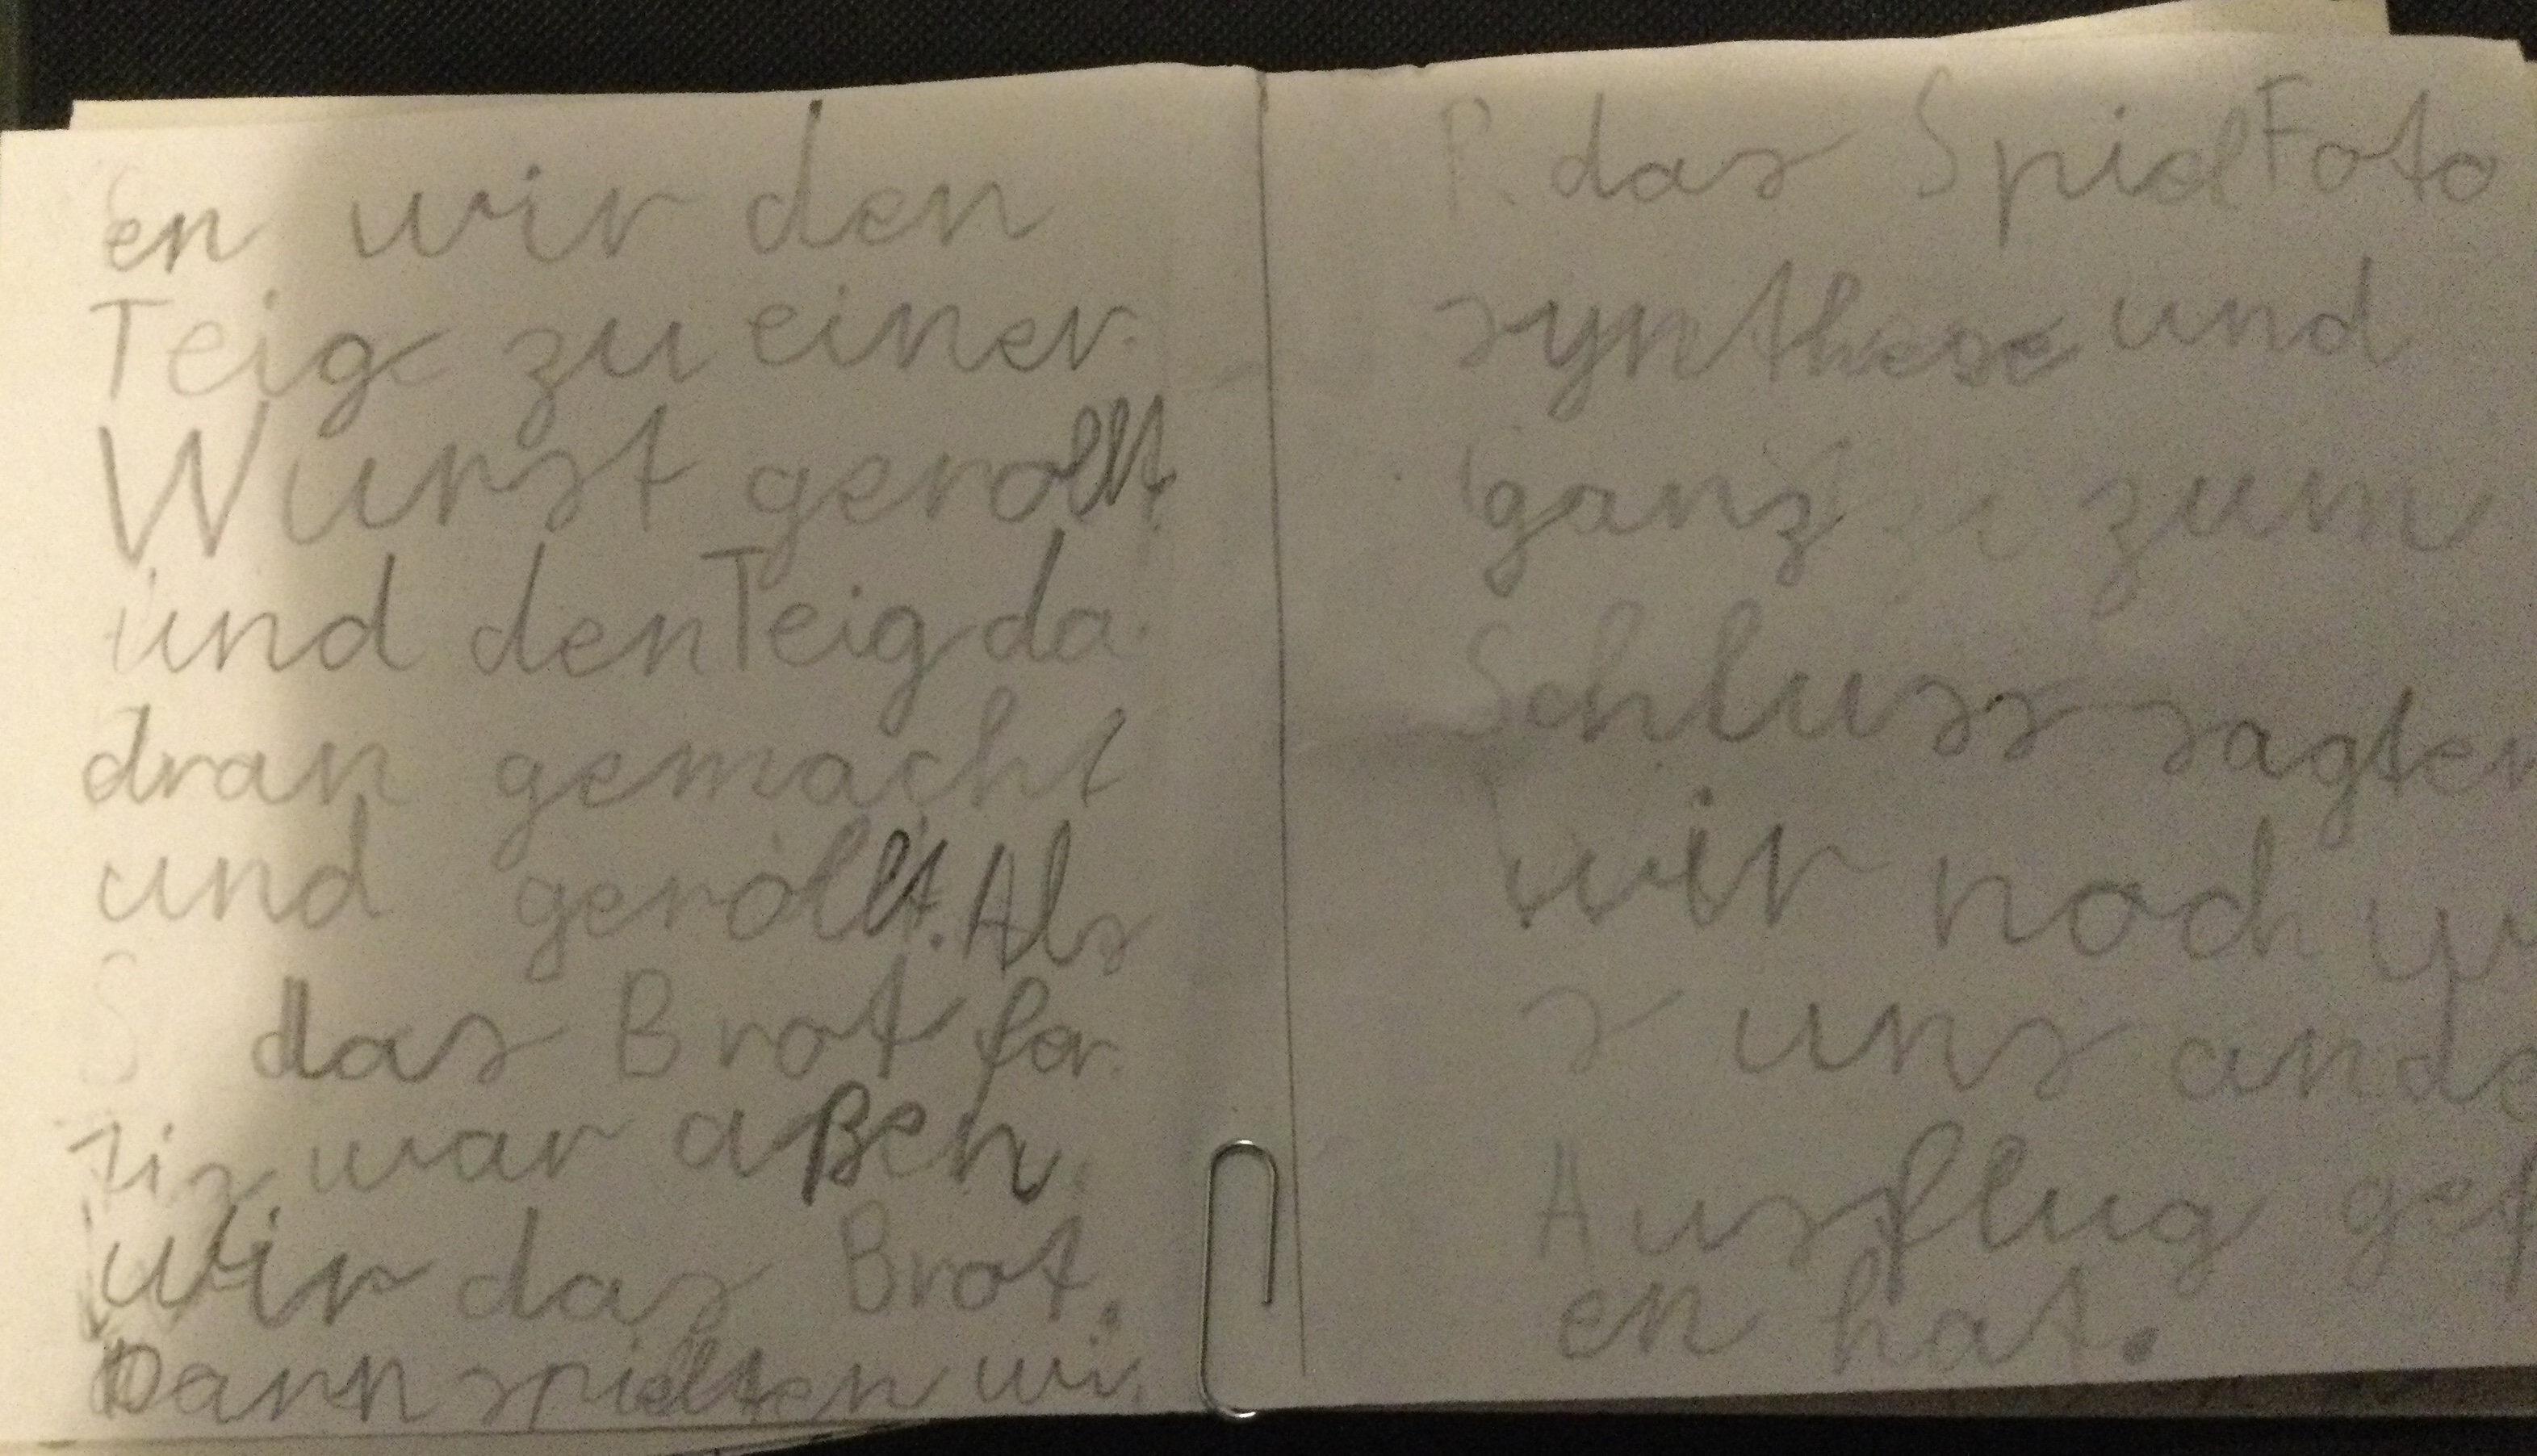 en wir den
Teig zu einer
Wurst gerollt
und den Teig da
dran gemacht
und gerollt. Als
das Brot fer
tig war aßen
wir das Brot.
Dann spielten wi
R das Spiel Foto
synthese und
ganz zum
Schluss sagten
wir noch w
s uns an de
Ausflug gef
en hat.